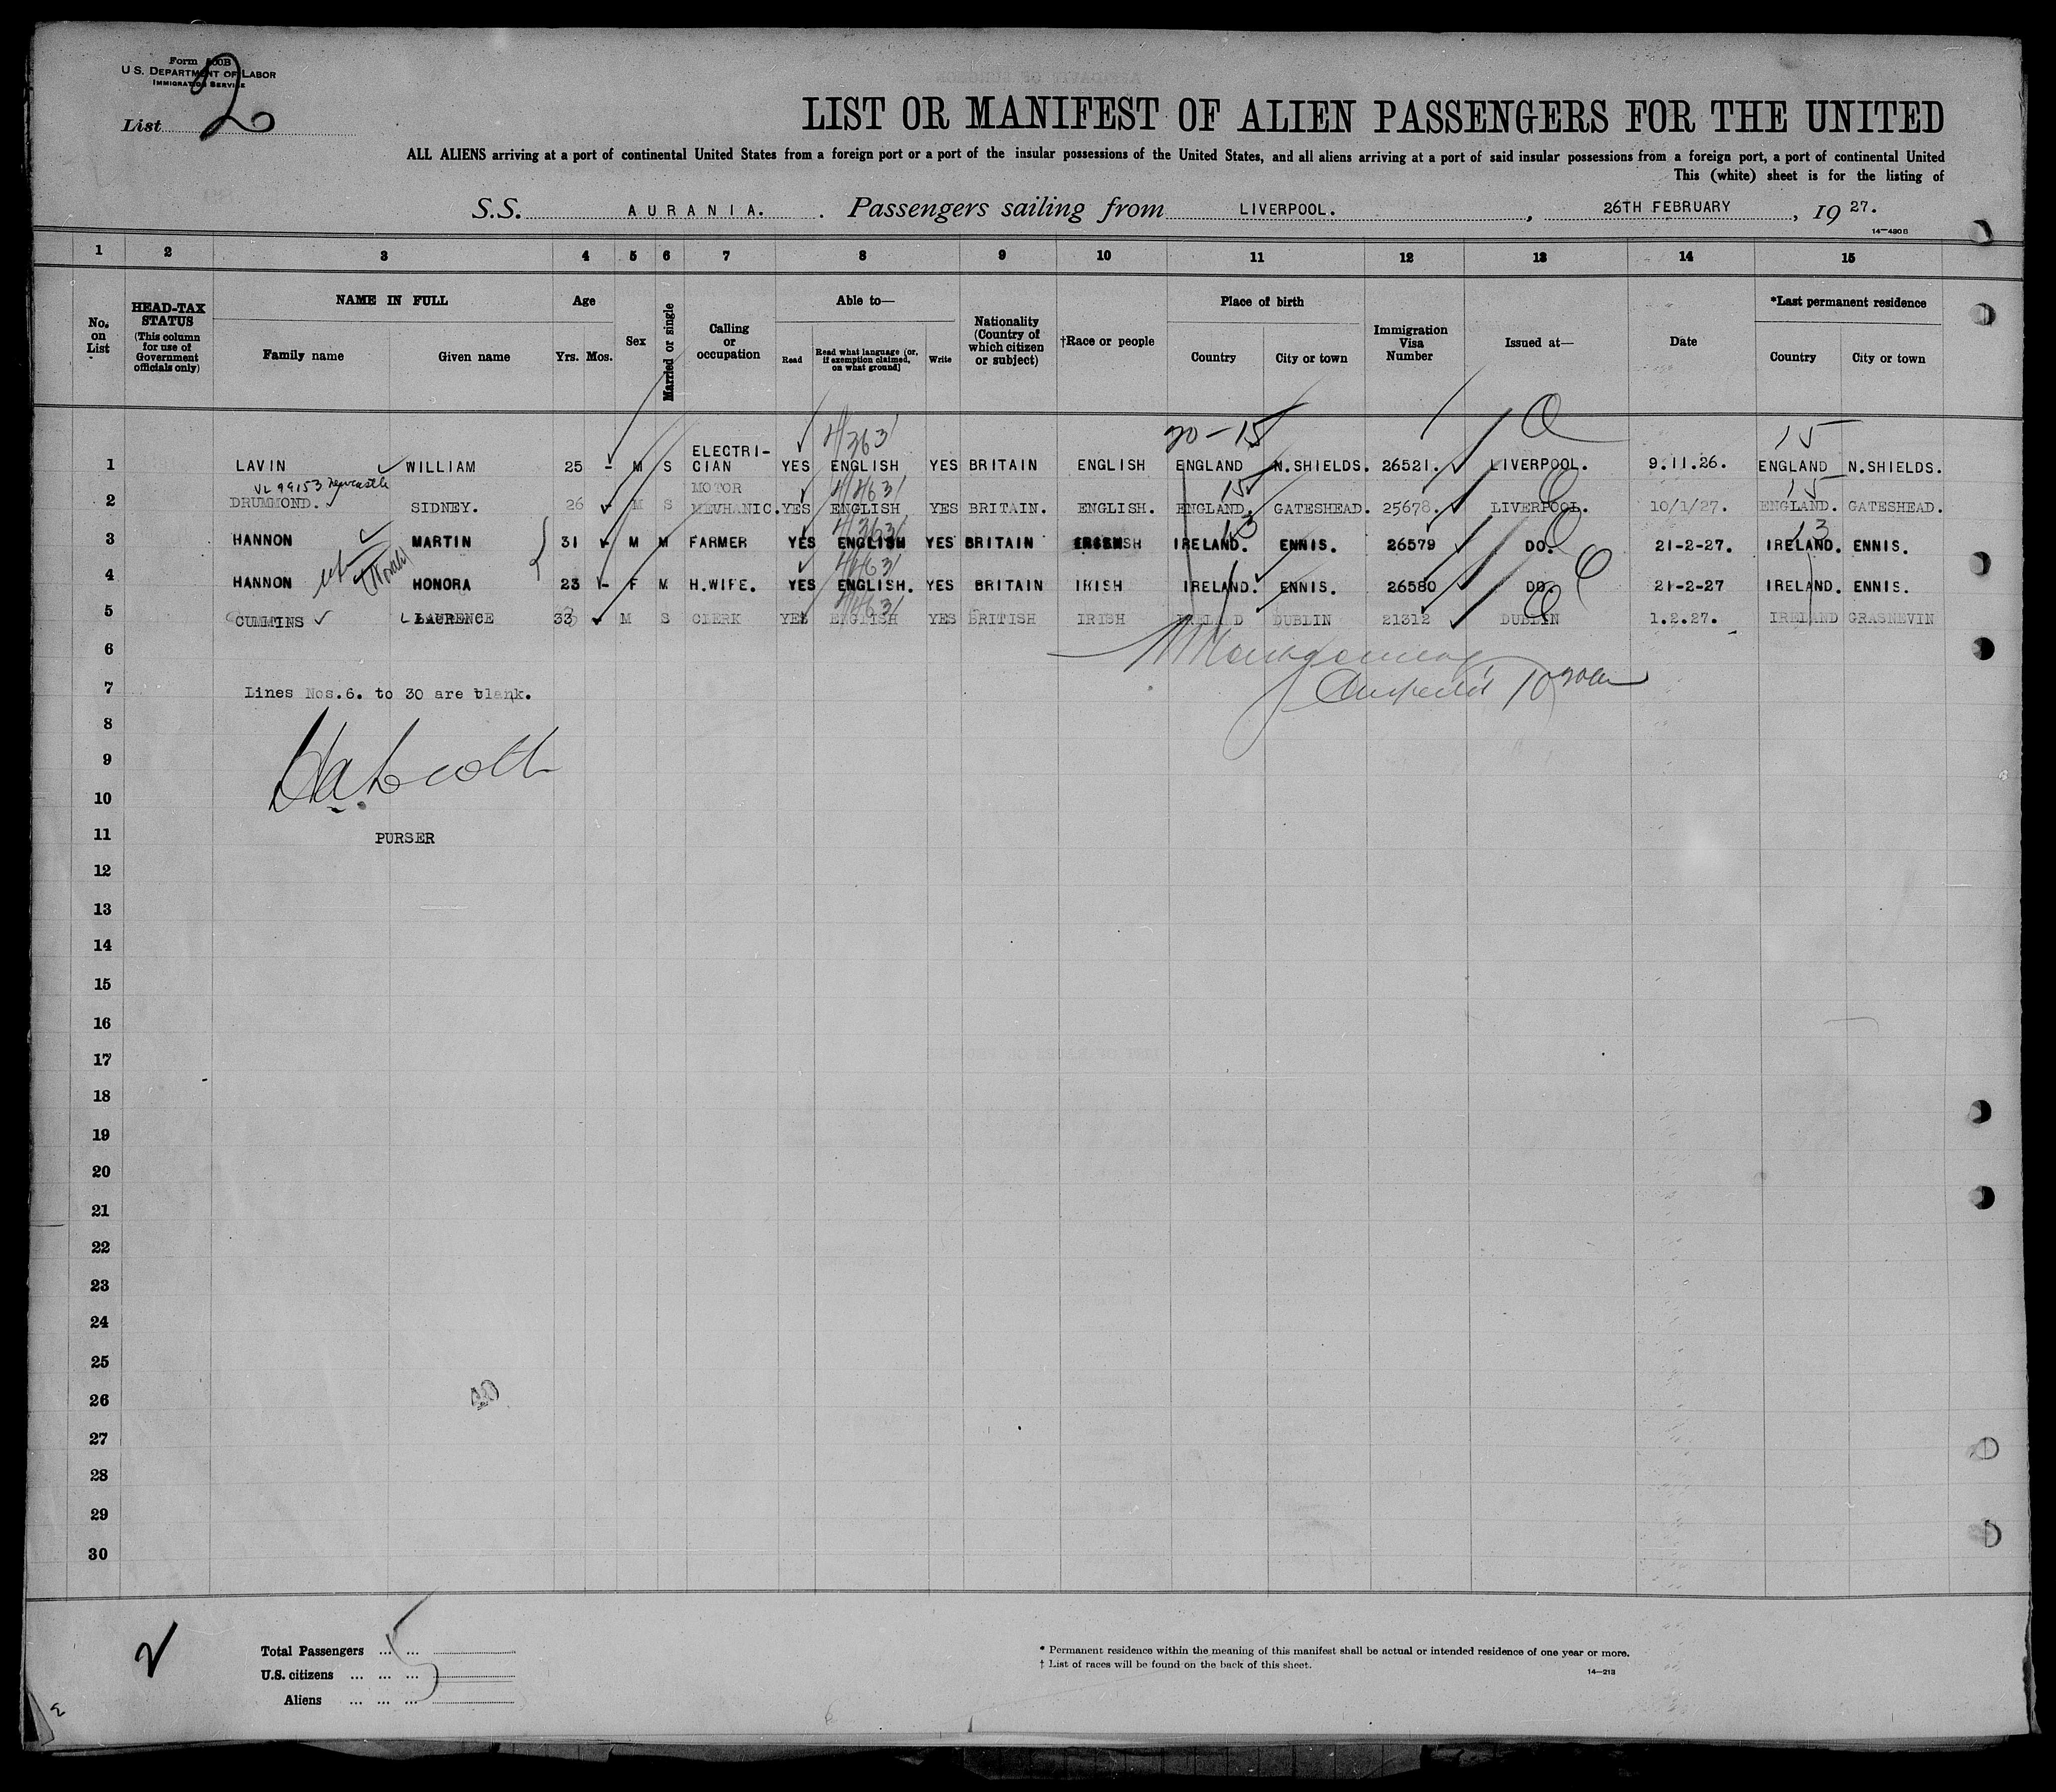 Form 500B
U. S. DEPARTMENT OF LABOR
IMMIGRATION SERVICE
List 2
LIST OR MANIFEST OF ALIEN PASSENGERS FOR THE UNITED
ALL ALIENS arriving at a port of continental United States from a foreign port or a port of the insular possessions of the United States, and all aliens arriving at a port of said insular possessions from a foreign port, a port of continental United
This (white) sheet is for the listing of
S.S. AURANIA. Passengers sailing from LIVERPOOL. , 26TH FEBRUARY , 19 27.
14—480B
1 2 3 4 5 6 7 8 9 10 11 12 13 14 15
No. on List
HEAD-TAX STATUS (This column for use of Government officials only)
NAME IN FULL
Family name Given name
Age
Yrs. Mos.
Sex
Married or single
Calling or occupation
Able to—
Read Read what language [or, if exemption claimed, on what ground] Write
Nationality (Country of which citizen or subject)
†Race or people
Place of birth
Country City or town
Immigration Visa Number
Issued at—
Date
*Last permanent residence
Country City or town
4/363 20-15 15
1 LAVIN WILLIAM 25 - M S ELECTRI-CIAN YES ENGLISH YES BRITAIN ENGLISH ENGLAND N.SHIELDS. 26521. LIVERPOOL. 9.11.26. ENGLAND N.SHIELDS.
VL 99153 Newcastle 15 15
2 DRUMMOND. SIDNEY. 26 M S MOTOR MEVHANIC. YES ENGLISH YES BRITAIN. ENGLISH. ENGLAND. GATESHEAD. 25678. LIVERPOOL. 10/1/27. ENGLAND. GATESHEAD.
13 13
3 HANNON MARTIN 31 - M M FARMER YES ENGLISH YES BRITAIN IRELAND. ENNIS. 26579 DO. 21-2-27. IRELAND. ENNIS.
(Norah)
4 HANNON HONORA 23 - F M H.WIFE. YES ENGLISH. YES BRITAIN IRISH IRELAND. ENNIS. 26580 DO. 21-2-27 IRELAND. ENNIS.
5 CUMMINS LAURENCE 33 M S CLERK YES ENGLISH YES BRITISH IRISH IRELAND DUBLIN 21312 DUBLIN 1.2.27. IRELAND GRASNEVIN
6
7 Lines Nos.6. to 30 are blank.
8
9
10
11 PURSER
12
13
14
15
16
17
18
19
20
21
22
23
24
25
26
27
28
29
30
2
Total Passengers ... ... 5
U.S. citizens ... ... ...
Aliens ... ... ...
* Permanent residence within the meaning of this manifest shall be actual or intended residence of one year or more.
† List of races will be found on the back of this sheet.
14—213